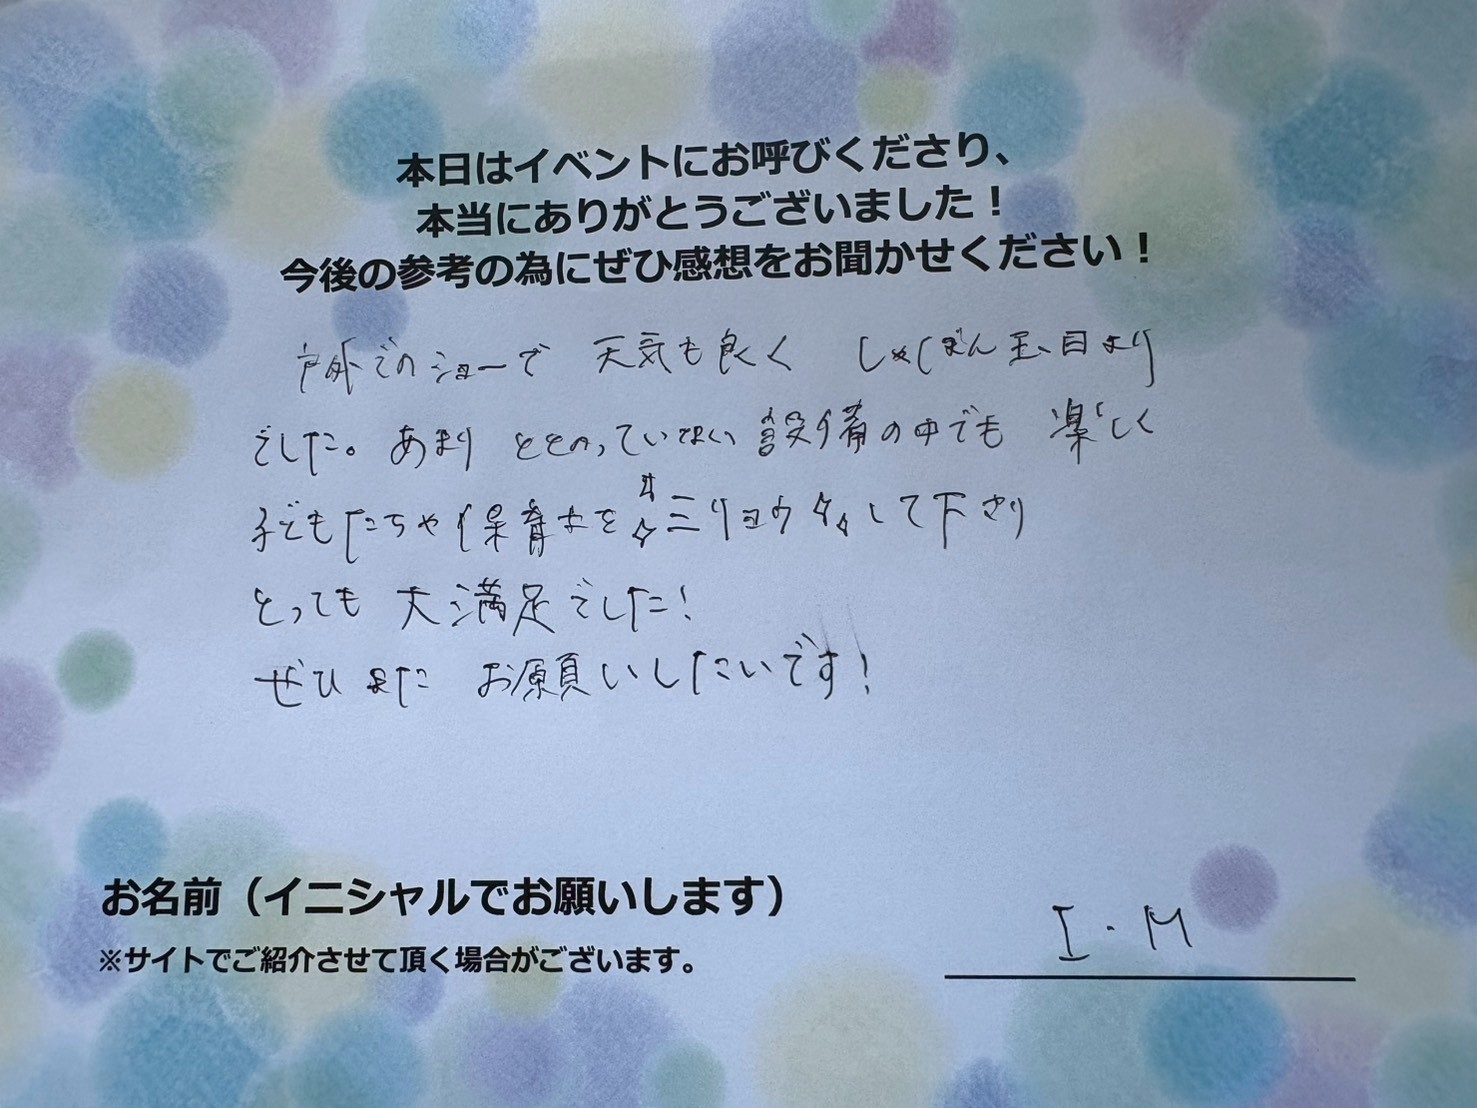 本日はイベントにお呼びくださり、
本当にありがとうございました！
今後の参考の為にぜひ感想をお聞かせください！
戸外でのショーで 天気も良く しゃぼん玉日より
でした。あまり ととのっていない 設備の中でも 楽しく
子どもたちや保育士を ミリョウ して下さり
とっても 大満足でした！
ぜひ また お願いしたいです！
お名前（イニシャルでお願いします）
I・M
※サイトでご紹介させて頂く場合がございます。